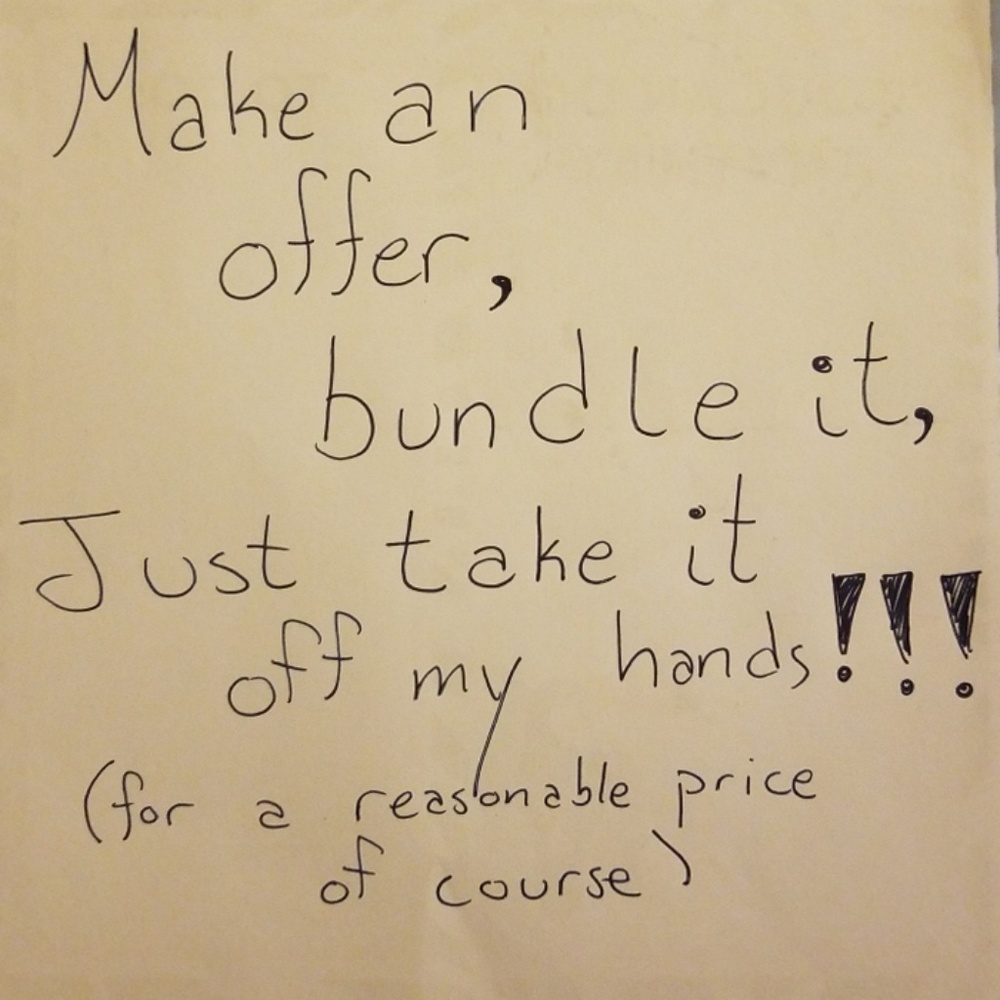 Make an
offer,
bundle it,
Just take it
off my hands!!!
(for a reasonable price
of course)